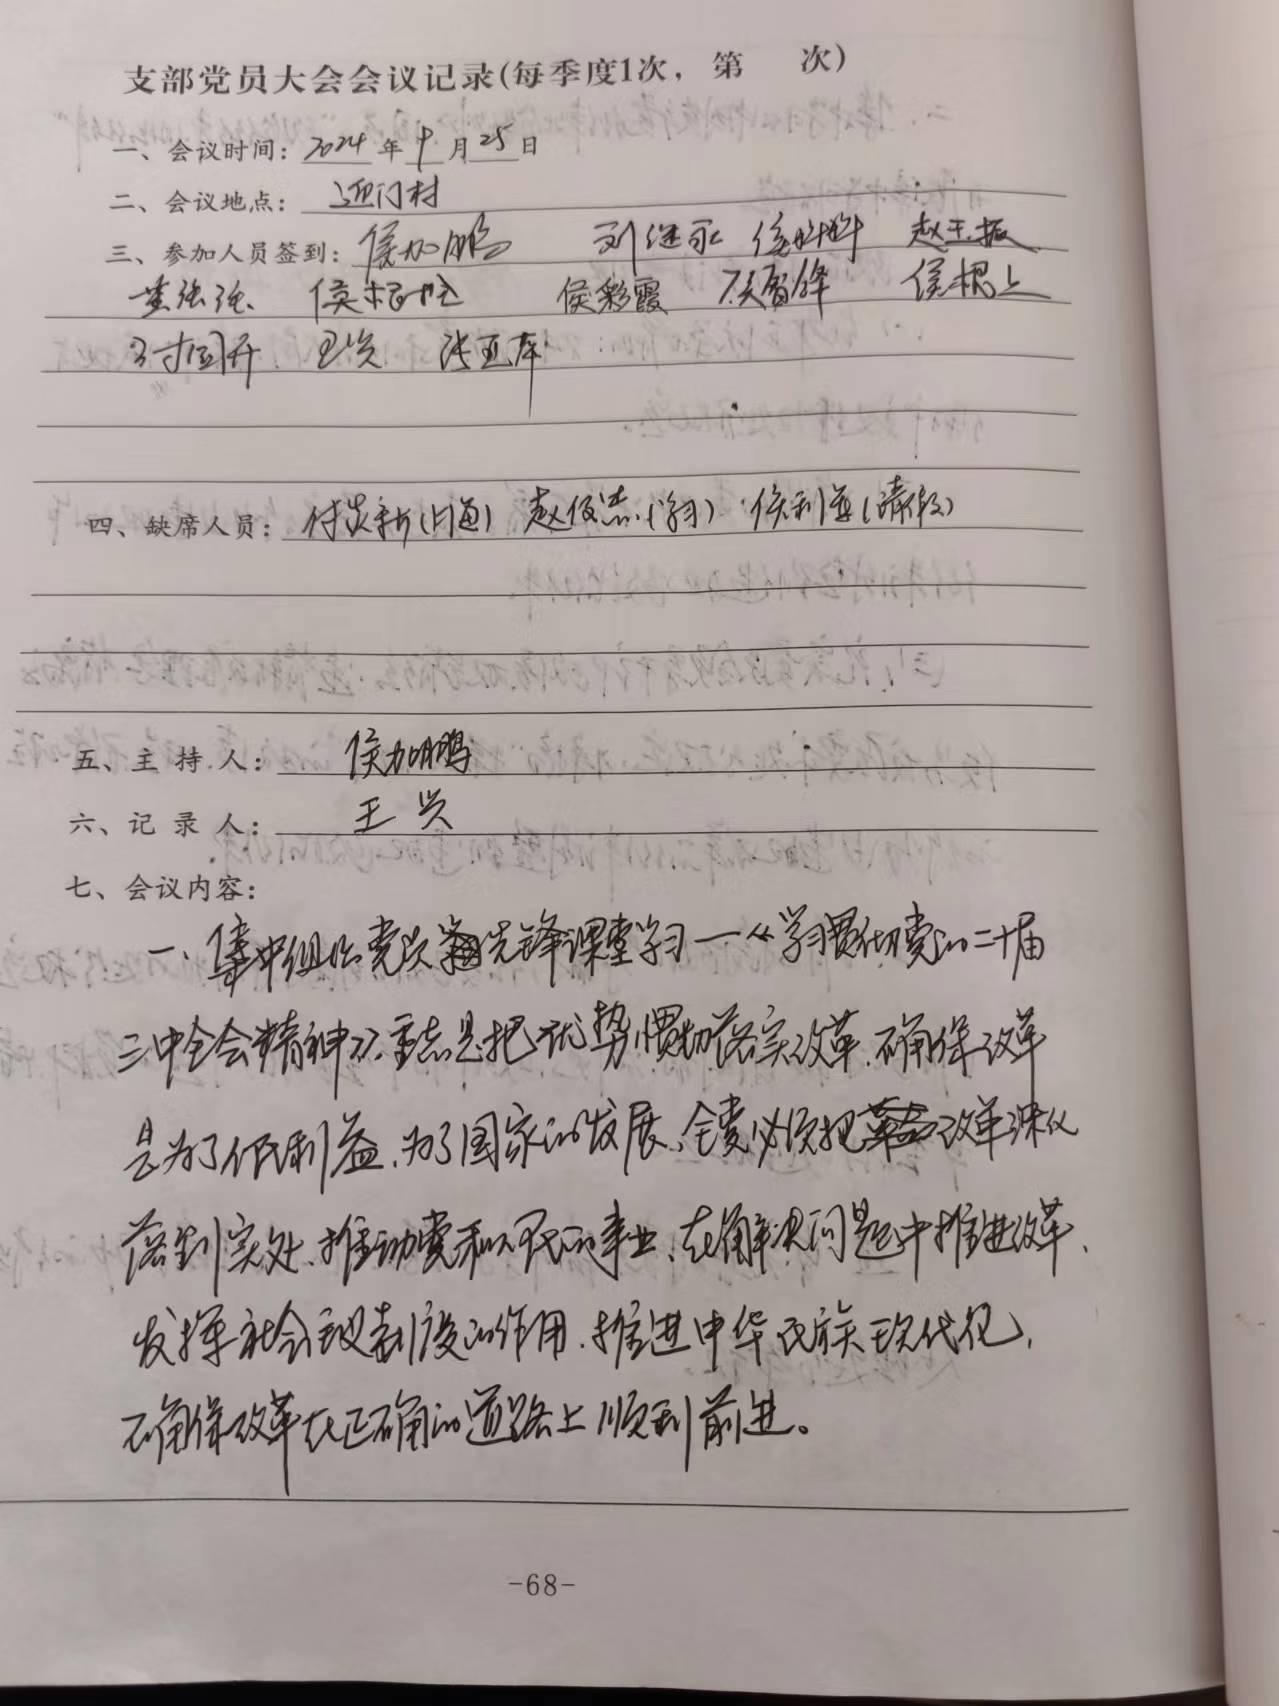 支部党员大会会议记录(每季度1次，第　　次)
一、会议时间：2024年9月25日
二、会议地点：迎门村
三、参加人员签到：侯加鹏 刘继永 侯科科 赵玉振
黄强强 侯根柱 侯彩霞 侯智锋 侯根上
王兴 张亚库
四、缺席人员：付炎新(上海) 赵俊杰(学习) 侯利海(请假)
五、主持人：侯加鹏
六、记录人：王兴
七、会议内容：
一、集中组织党员先锋课堂学习一《学习贯彻党的二十届
三中全会精神》，重点是把优势惯彻落实改革、确保改革
是为了人民利益、为了国家的发展、全党必须把改革
落到实处、推动党和人民的事业、在解决问题中推进改革、
发挥社会主义制度的作用、推进中华民族现代化，
确保改革在正确的道路上顺利前进。
-68-